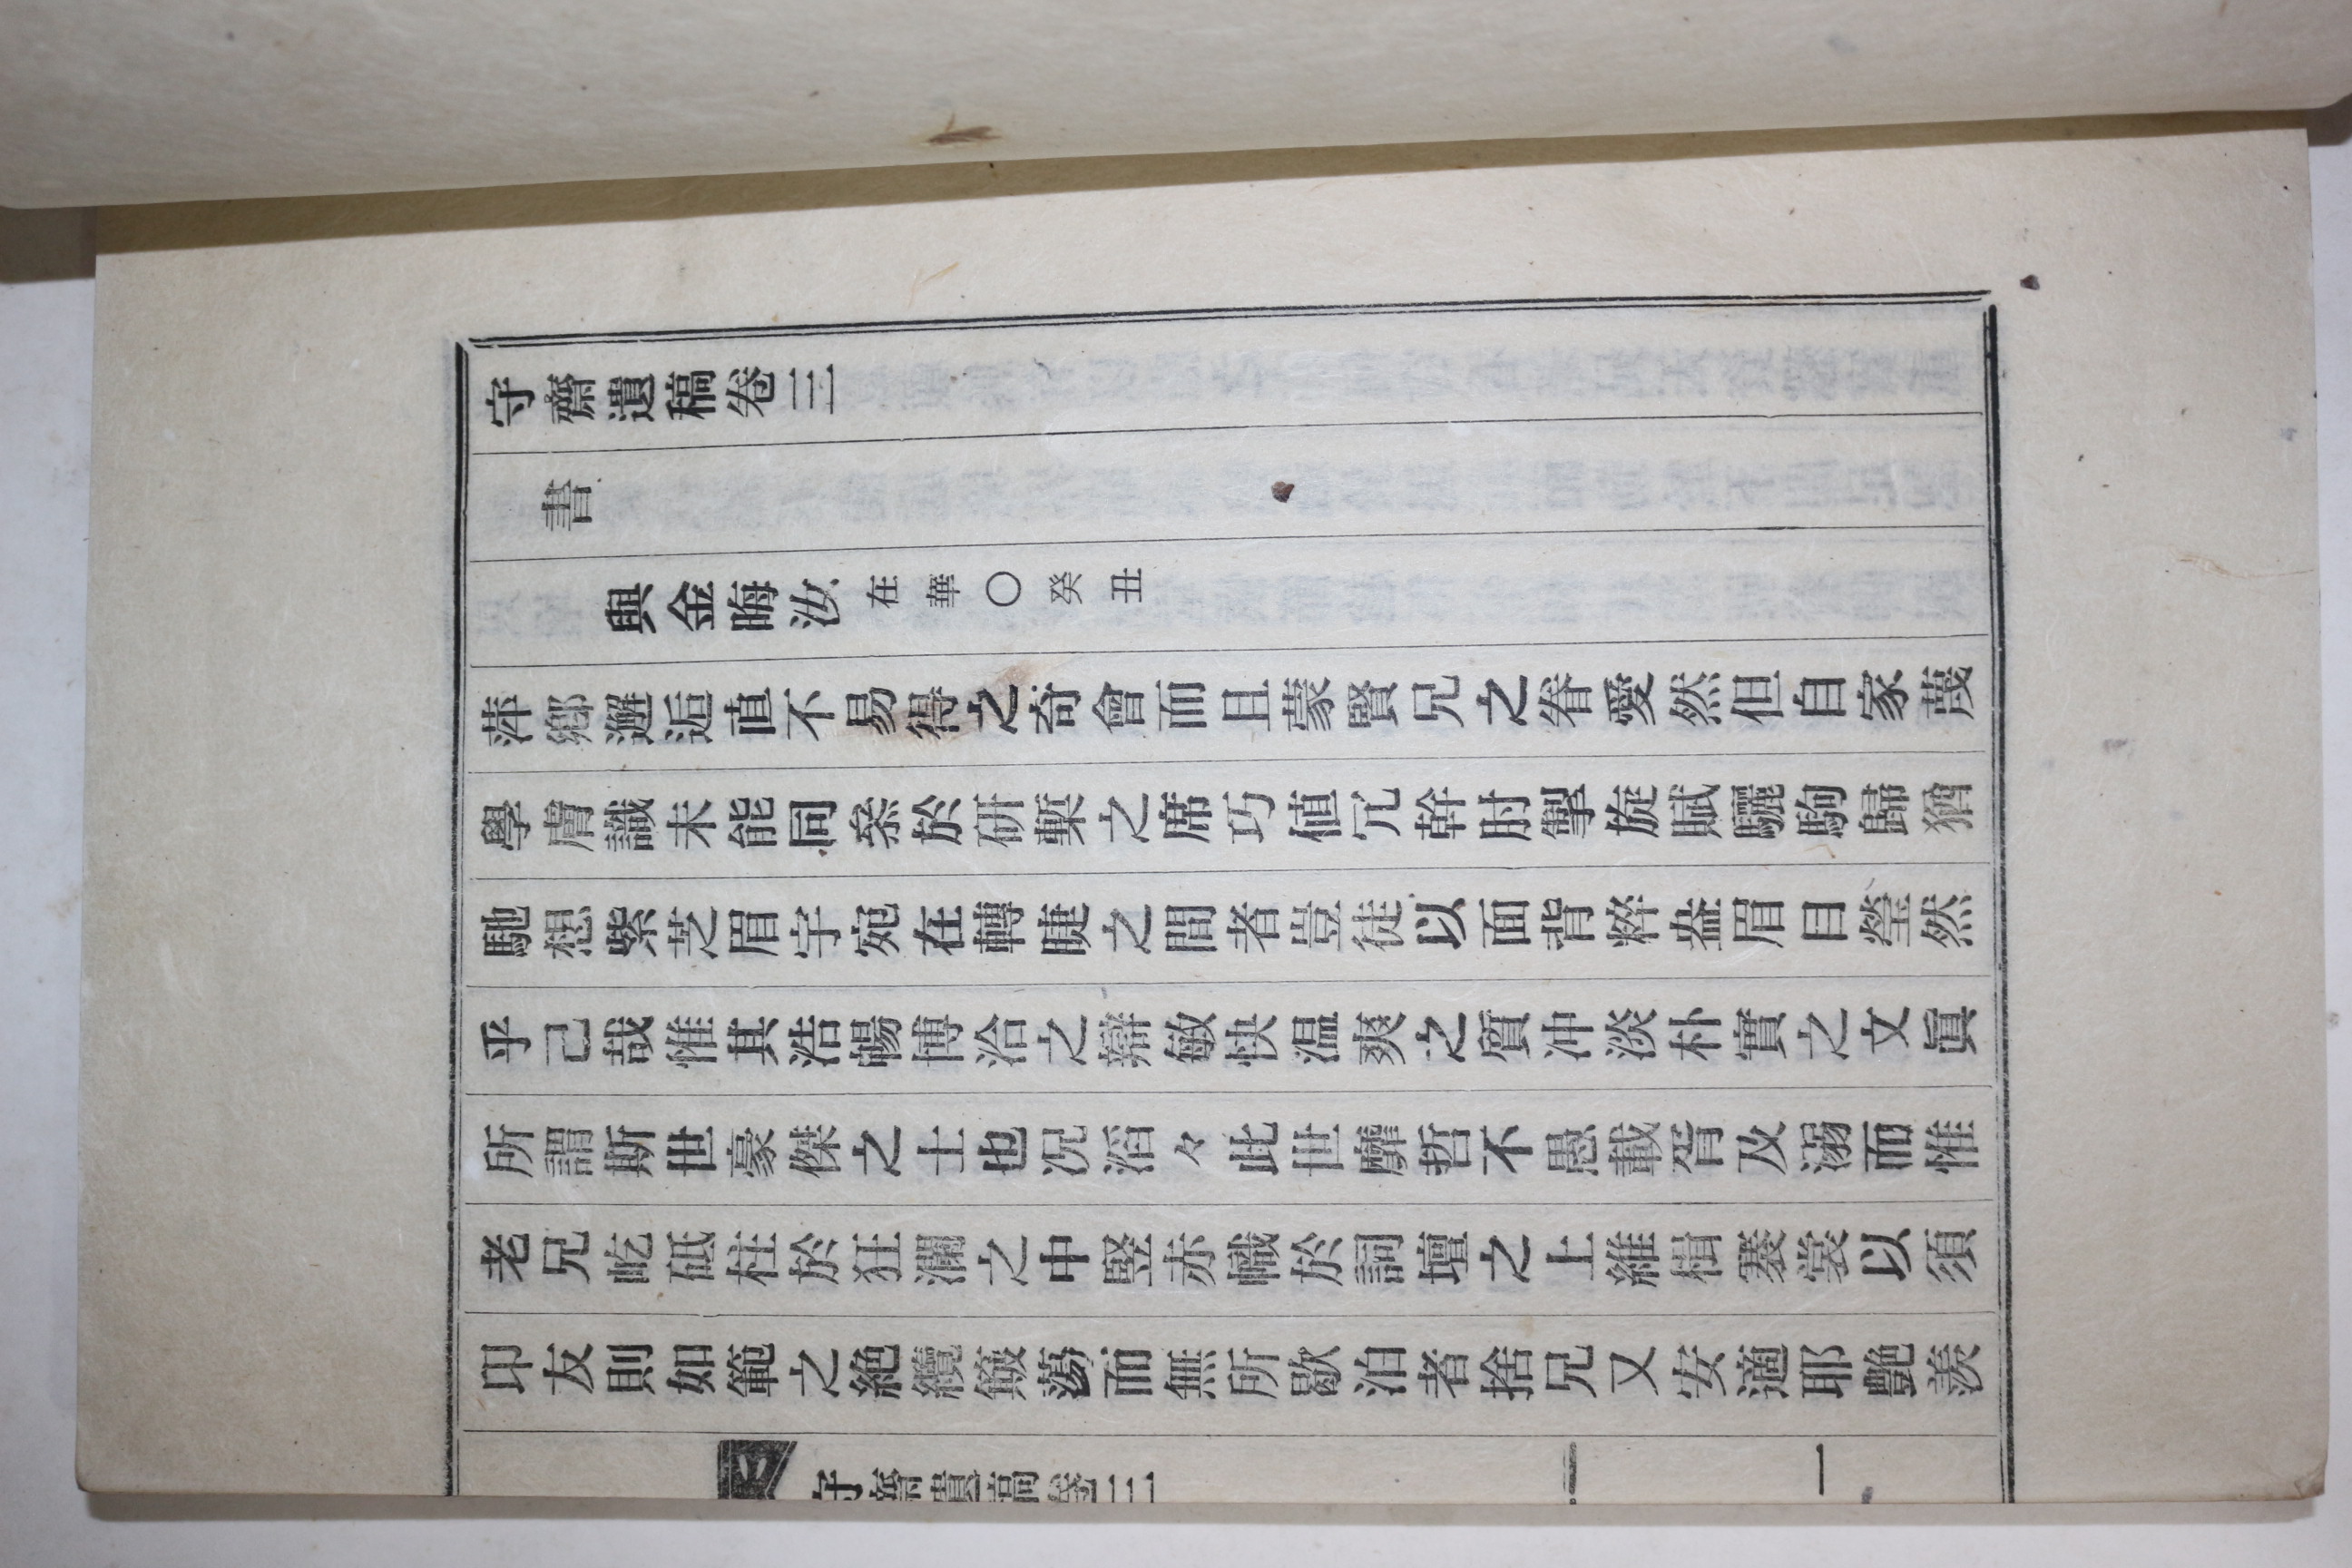 守齋遺稿卷三
書
與金晦汝在華○癸丑
萍鄉邂逅直不易得之奇會而且蒙賢兄之眷愛然但自家蔑
學膚識未能同叅於研槧之席巧値冗幹肘掣旋賦驪駒歸猶
馳想紫芝眉宇宛在轉睫之間者豈徒以面背粹盎眉目瑩然
乎己哉惟其浩暢博洽之辯敏快温爽之質冲淡朴實之文眞
所謂斯世豪傑之士也况滔々此世靡哲不愚載胥及溺而惟
老兄屹砥柱於狂瀾之中竪赤幟於詞壇之上維楫褰裳以須
卬友則如範之絶纜簸蕩而無所歇泊者捨兄又安適耶艶羨
守齋遺稿卷三 一